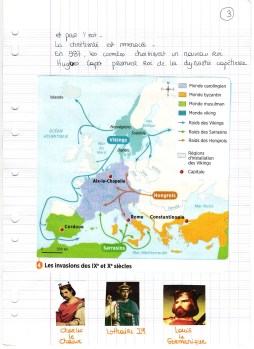 3
et par l'est.
La chrétienté est menacée.
En 987, les comtes choisissent un nouveau Roi
Hugues Capet premier Roi de la dynastie capétienne.
Islande
OCÉAN ATLANTIQUE
Norvégiens
Suédois
Vikings
Danois
Aix-la-Chapelle
Hongrois
Rome
Constantinople
Cordoue
Sarrasins
Mer Méditerranée
Mer Noire
500 km
Monde carolingien
Monde byzantin
Monde musulman
Monde viking
Raids des Vikings
Raids des Sarrasins
Raids des Hongrois
Régions d'installation des Vikings
Capitale
4 Les invasions des IXe et Xe siècles
Charles le Chauve
Lothaire Ier
Louis le Germanique